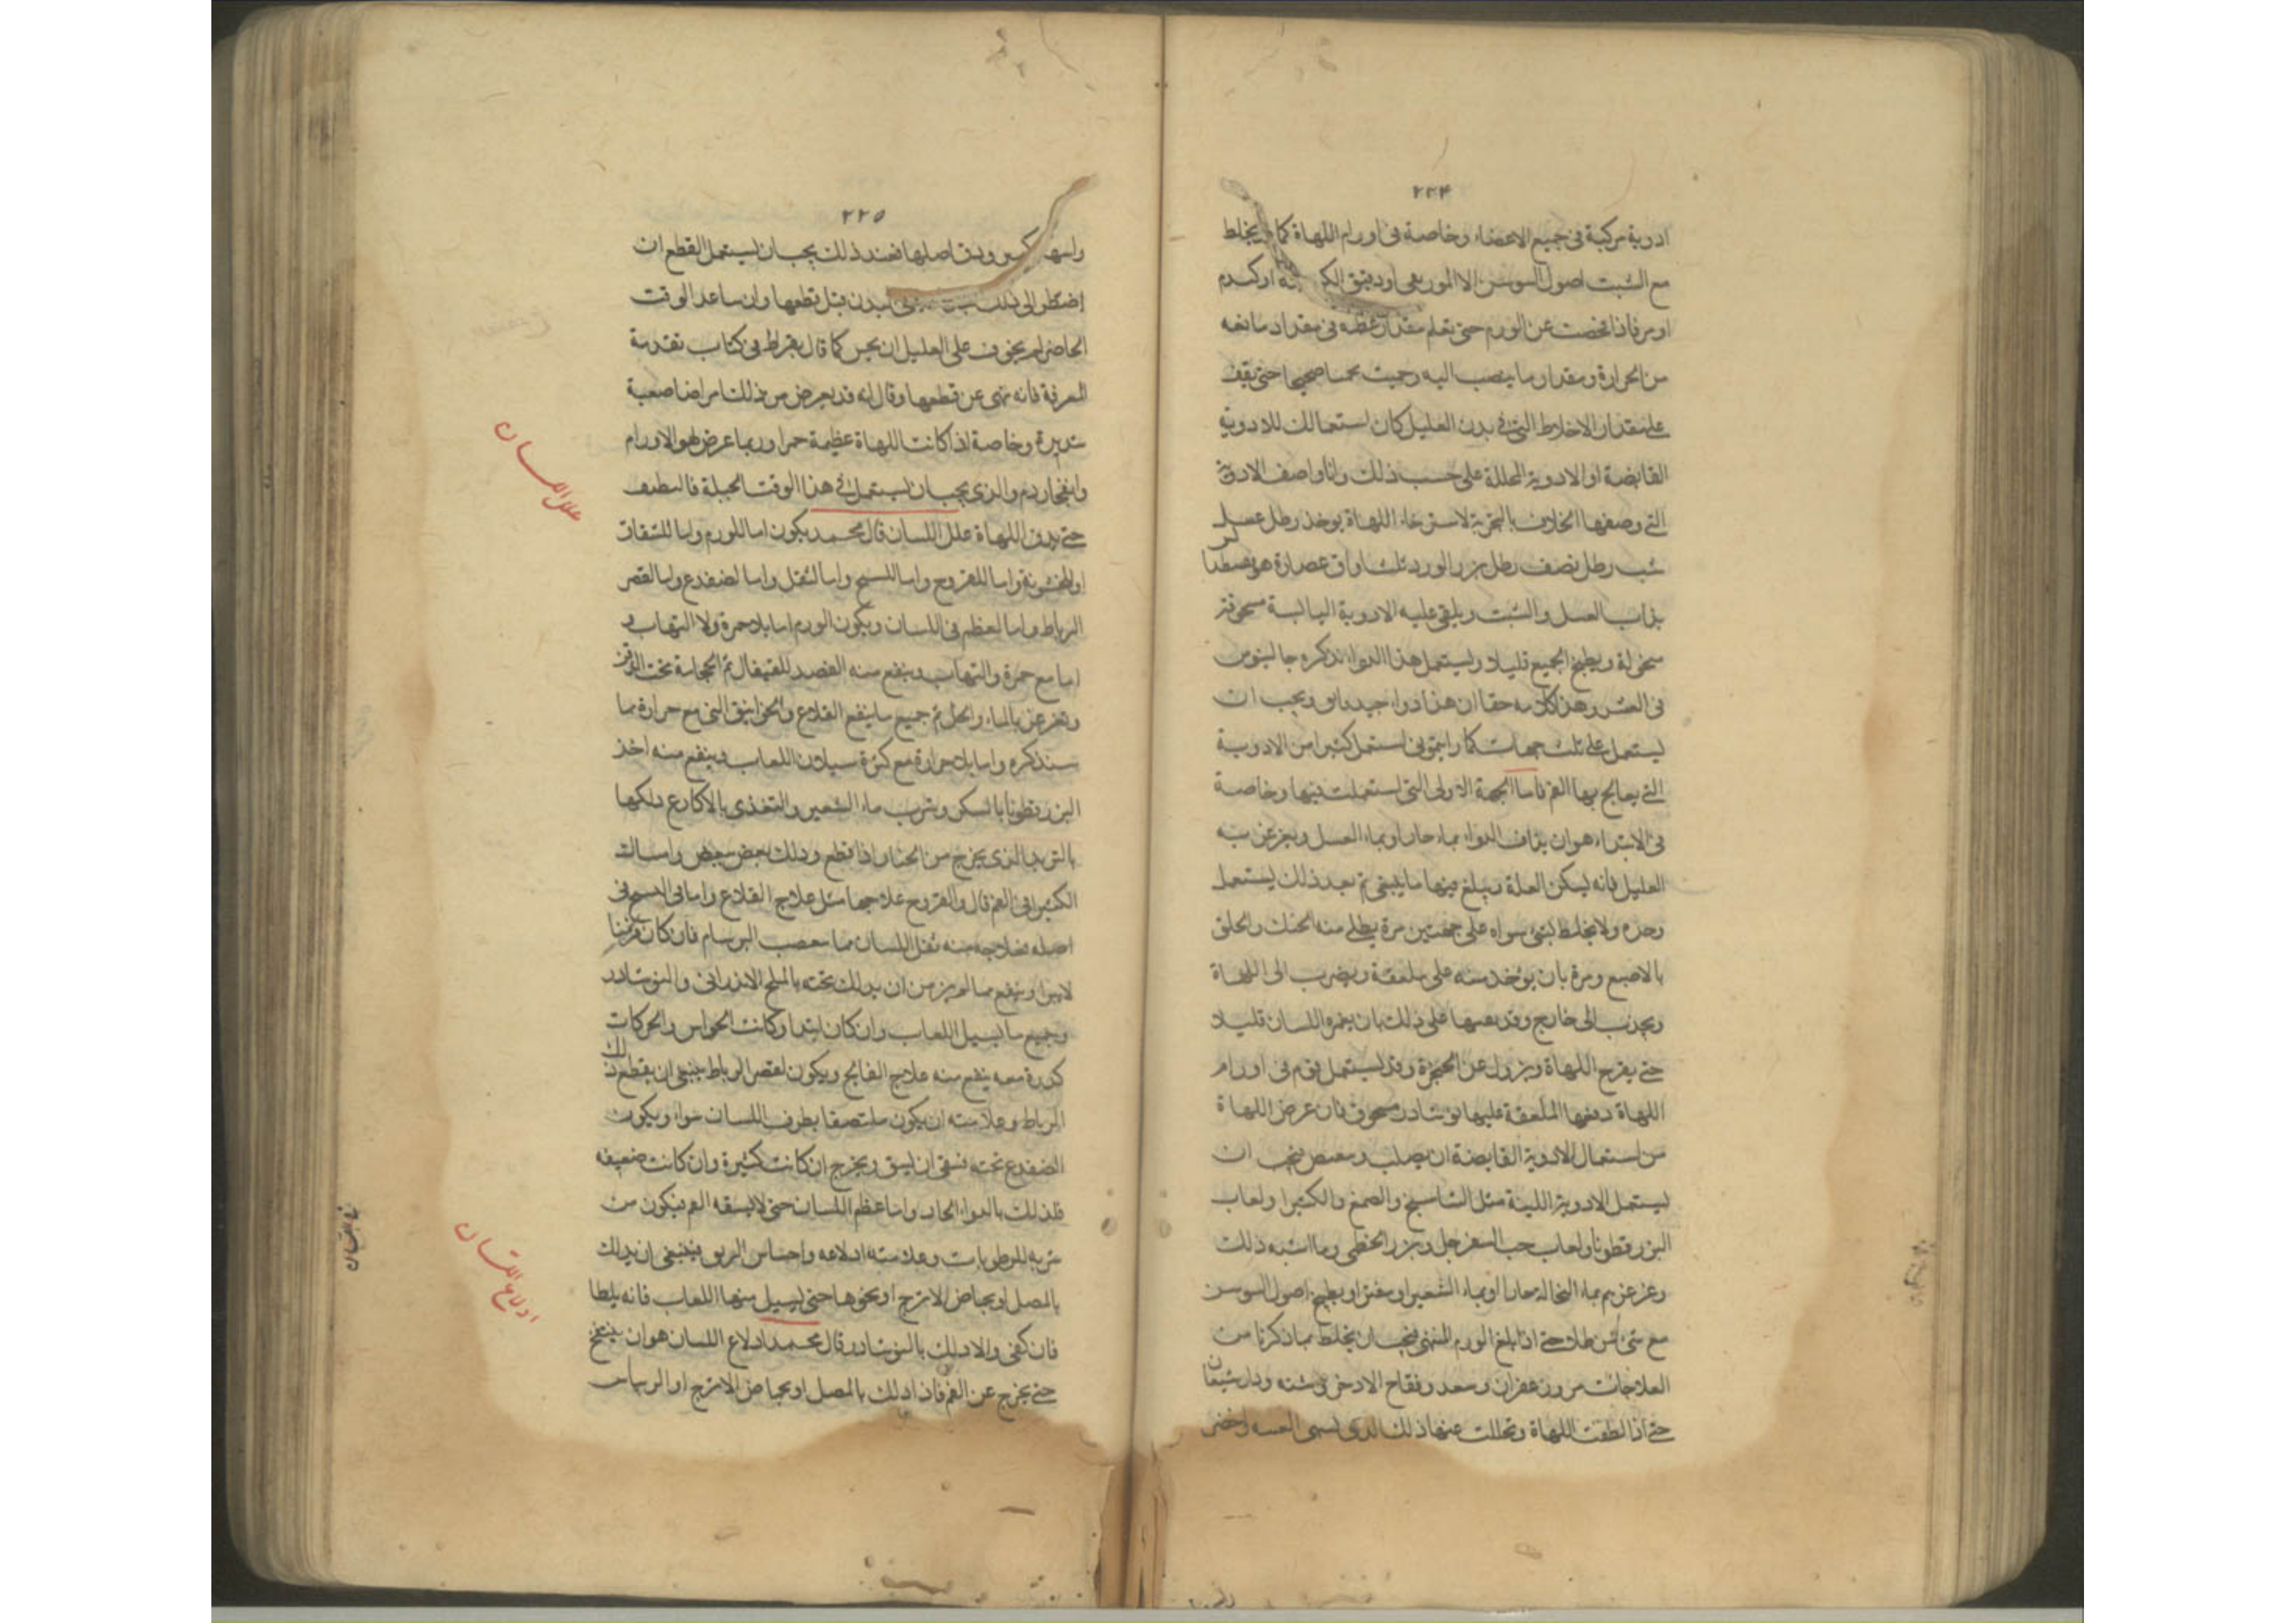 ٢٢٤
ادوية مركبة فى جميع الاعضاء وخاصة فى اورام اللهاة كما يخلط
مع الشبت اصول السوسن الاسمانجونى او دقيق
او مر فاذا فحصت عن الورم حتى تعلم مقدار عظمه فى مقدار ما معه
من الحرارة ومقدار ما ينصب اليه وحيث صحيحا حتى يقف
على مقدار الاخلاط التى فى بدن العليل كان استعمالك للادوية
القابضة او الادوية المحللة على حسب ذلك وانا واصف الادوية
التى وصفها بالتجربة لاسترخاء اللهاة يوخذ رطل عسل
شب رطل نصف رطل بزر الورد ثلث اواق عصارة
يذاب العسل والشبت ويلقى عليه الادوية اليابسة مسحوقة
منخولة ويطبخ الجميع قليلا ويستعمل هذا الدواء ذكره جالينوس
فى وهذا كلامه حقا ان هذا دواء جيد ويجب ان
يستعمل على ثلث جهات كما رايتمونى استعمل كثيرا من الادوية
التى يعالج بها الفم فاما الجهة الاولى التى استعملت فيها وخاصة
فى الابتداء هو ان يداف الدواء بماء حار او بماء العسل ويغرغر به
العليل فانه يسكن العلة ويبلغ فيها ما ينبغى ثم بعد ذلك يستعمل
وحده ولا يخلط بشئ سواه على جهتين مرة يطلى منه الحنك والحلق
بالاصبع ومرة بان يوخذ منه على ملعقة ويضرب الى اللهاة
ويجذب الى خارج وقد على ذلك بان يغمر اللسان قليلا
حتى اللهاة ويزول عن الحنجرة وقد يستعمل قوم فى اورام
اللهاة دفعها الملعقة عليها نوشادر مسحوق فان عرض اللهاة
من استعمال الادوية القابضة ان يصلب فيجب ان
يستعمل الادوية اللينة مثل النشاستج والصمغ والكثيرا ولعاب
البزر قطونا ولعاب حب السفرجل وبزر الخطمى وما اشبه ذلك
وغرغرهم بماء النخالة حارا او بماء الشعير او بطبيخ اصول السوسن
مع شئ من طلا حتى اذا بلغ الورم المنتهى فيجب ان يخلط بما ذكرنا من
العلاجات مر وزعفران وسعد وفقاح الاذخر ودارشيشعان
حتى اذا لطفت اللهاة وتحللت عنها ذلك الذى يسمى
٢٢٥
راسها كبير ودق اصلها فعند ذلك يجب ان يستعمل القطع ان
اضطر الى ذلك البدن قبل قطعها وان ساعد الوقت
الحاضر لم يخوف على العليل كما قال بقراط فى كتاب تقدمة
المعرفة فانه نهى عن قطعها وقال انه قد يعرض من ذلك امراضا صعبة
شديدة وخاصة اذا كانت اللهاة عظيمة حمرا وربما عرض الاورام
وانفجار دم والذى يجب ان يستعمل فى هذا الوقت الحيلة
حتى يدق اللهاة علل اللسان قال محمد يكون اما للورم واما للشقاق
والخشونة واما للقروح واما واما لثقل واما لضفدع واما لقصر
الرباط واما لعظم فى اللسان ويكون الورم اما بلا حمرة ولا التهاب و
اما مع حمرة والتهاب وينفع منه الفصد للقيفال ثم الحجامة تحت الذقن
وتغرغر بالماء والخل ثم جميع ما ينفع القلاع والخوانيق التى مع حرارة مما
سنذكره واما بلا حرارة مع كثرة سيلان اللعاب وينفع منه اخذ
البزر قطونا بالسكر وشرب ماء الشعير والتغذى بالاكارع دلكها
بالزبد الذى يخرج من الخيار اذا قطع ودلك بعض ببعض وامساك
الكثيرا فى الفم قال والقروح علاجها مثل علاج القلاع واما فى
اصله فعلاجه منه ثقل اللسان مما يعقب البرسام فان كان
لا يبرا وينفع مما لم يزمن ان يدلك تحته بالملح الاندرانى والنوشادر
وجميع ما يسيل اللعاب وان كان ابتدا وكانت الحواس والحركات
كدرة معه ينفع منه علاج الفالج ويكون لقصر الرباط فينبغى ان يقطع ذلك
الرباط وعلامته ان يكون ملتصقا بطرف اللسان سواء ويكون
الضفدع تحته فينبغى ان يشق ويخرج ان كانت كبيرة وان كانت ضعيفه
فلذلك بالدواء الحاد واما عظم اللسان حتى لا يسعه الفم فيكون من
شربه للرطوبات وعلامته ادلاعه واحساس الريق فينبغى ان يدلك
بالمصل او بحماض الاترج او نحوها حتى يسيل منها اللعاب فانه يلطا
فان كفى والا دلك بالنوشادر قال محمد ادلاع اللسان هو ان ينتفخ
حتى يخرج عن الفم فاذا دلك بالمصل او بحماض الاترج او الريباس
علل اللسان
ادلاع اللسان